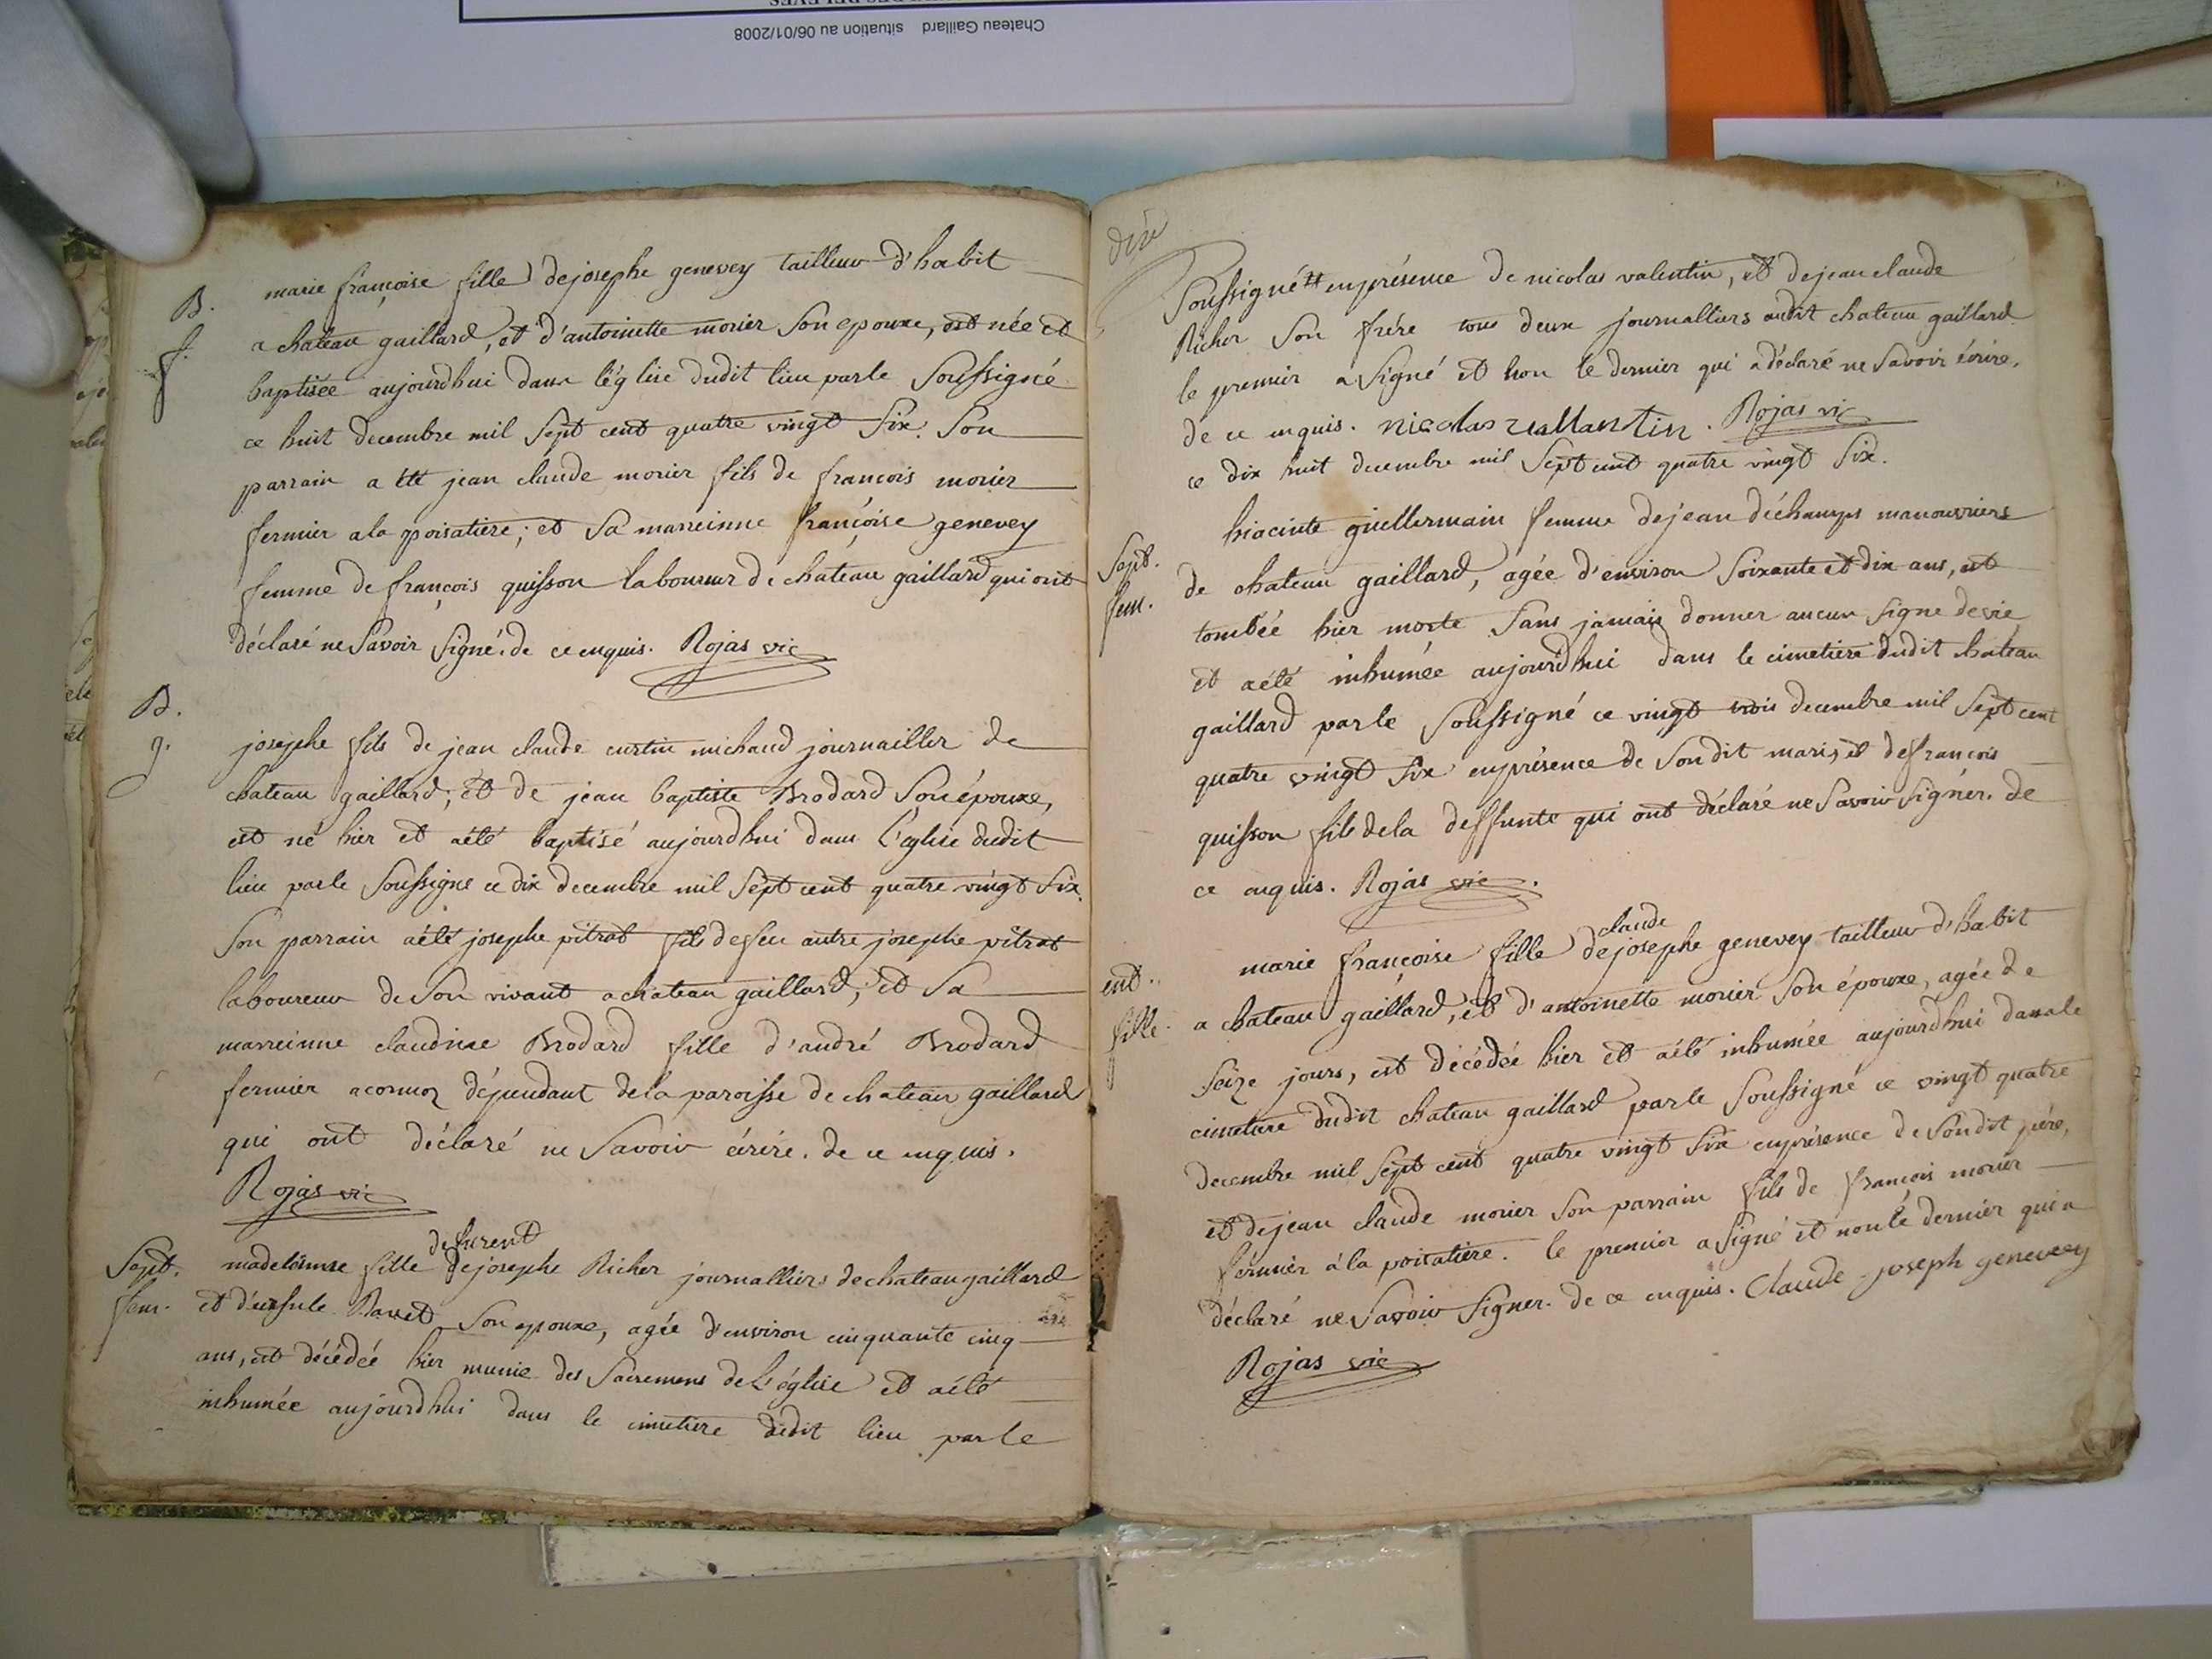 Chateau Gaillard situation au 06/01/2008
B.
f.
marie françoise fille de josephe genevey tailleur d'habit
a chateau gaillard, et d'antoinette morier son epouxe, est née et
baptisée aujourdhui dans l'églíse dudit lieu par le soussigné
ce huit decembre mil sept cent quatre vingt six. son
parrain a été jean claude morier fils de françois morier
fermier a la poisatiere; et sa marreinne françoise genevey
femme de françois quisson laboureur de chateau gaillard qui ont
déclaré ne savoir signé. de ce enquis. Rojas vic
B.
g.
josephe fils de jean claude curtin michaud journailler de
chateau gaillard; et de jean baptiste Brodard son épouxe,
est né hier et aété baptisé aujourdhui dans l'eglise dudit
lieu par le soussigné ce dix decembre mil sept cent quatre vingt six.
son parrain aété josephe pitrat fils de feu autre josephe pitrat
laboureur de son vivant a chateau gaillard; et sa
marreinne claudine Brodard fille d'andré Brodard
fermier a cormoz dépendant de la paroisse de chateau gaillard
qui ont déclaré ne savoir écrire. de ce enquis.
Rojas vic
defurent
Sept.
fem.
madeleinne fille de josephe Richer journalliers de chateau gaillard
et d'ursule Ravet son epouxe, agée d'environ cinquante cinq
ans, est décédée hier munie des sacremens de l'église et aété
inhumée aujourdhui dans le cimetiere dudit lieu par le
dixe
soussigné et en présence de nicolas valentin, et de jean claude
Richer son frére tous deux journalliers audit chateau gaillard
le premier a signé et non le dernier qui a déclaré ne savoir écrire.
de ce enquis. nicolas vallantin. Rojas vic
ce dix huit decembre mil sept cent quatre vingt six.
Sept.
fem.
hiacinte guillermain femme de jean déchamps manouvriers
de chateau gaillard, agée d'environ soixante et dix ans, est
tombée hier morte sans jamais donner aucun signe de vie
et aété inhumée aujourdhui dans le cimetiere dudit chateau
gaillard par le soussigné ce vingt trois decembre mil sept cent
quatre vingt six en présence de son dit maris, et de françois
quisson fils de la deffunte qui ont déclaré ne savoir signér. de
ce enquis. Rojas vic.
claude
ent.
fille.
marie françoise fille de josephe genevey tailleur d'habit
a chateau gaillard, et d'antoinette morier son épouxe, agée de
seize jours, est décédée hier et aété inhumée aujourdhui dans le
cimetiere dudit chateau gaillard par le soussigné ce vingt quatre
decembre mil sept cent quatre vingt six en présence de son dit pére,
et de jean claude morier son parrain fils de françois morier
férmier á la poisatiére. le premier a signé et non le dernier qui a
déclaré ne savoir signer. de ce enquis. Claude joseph genevey
Rojas vic